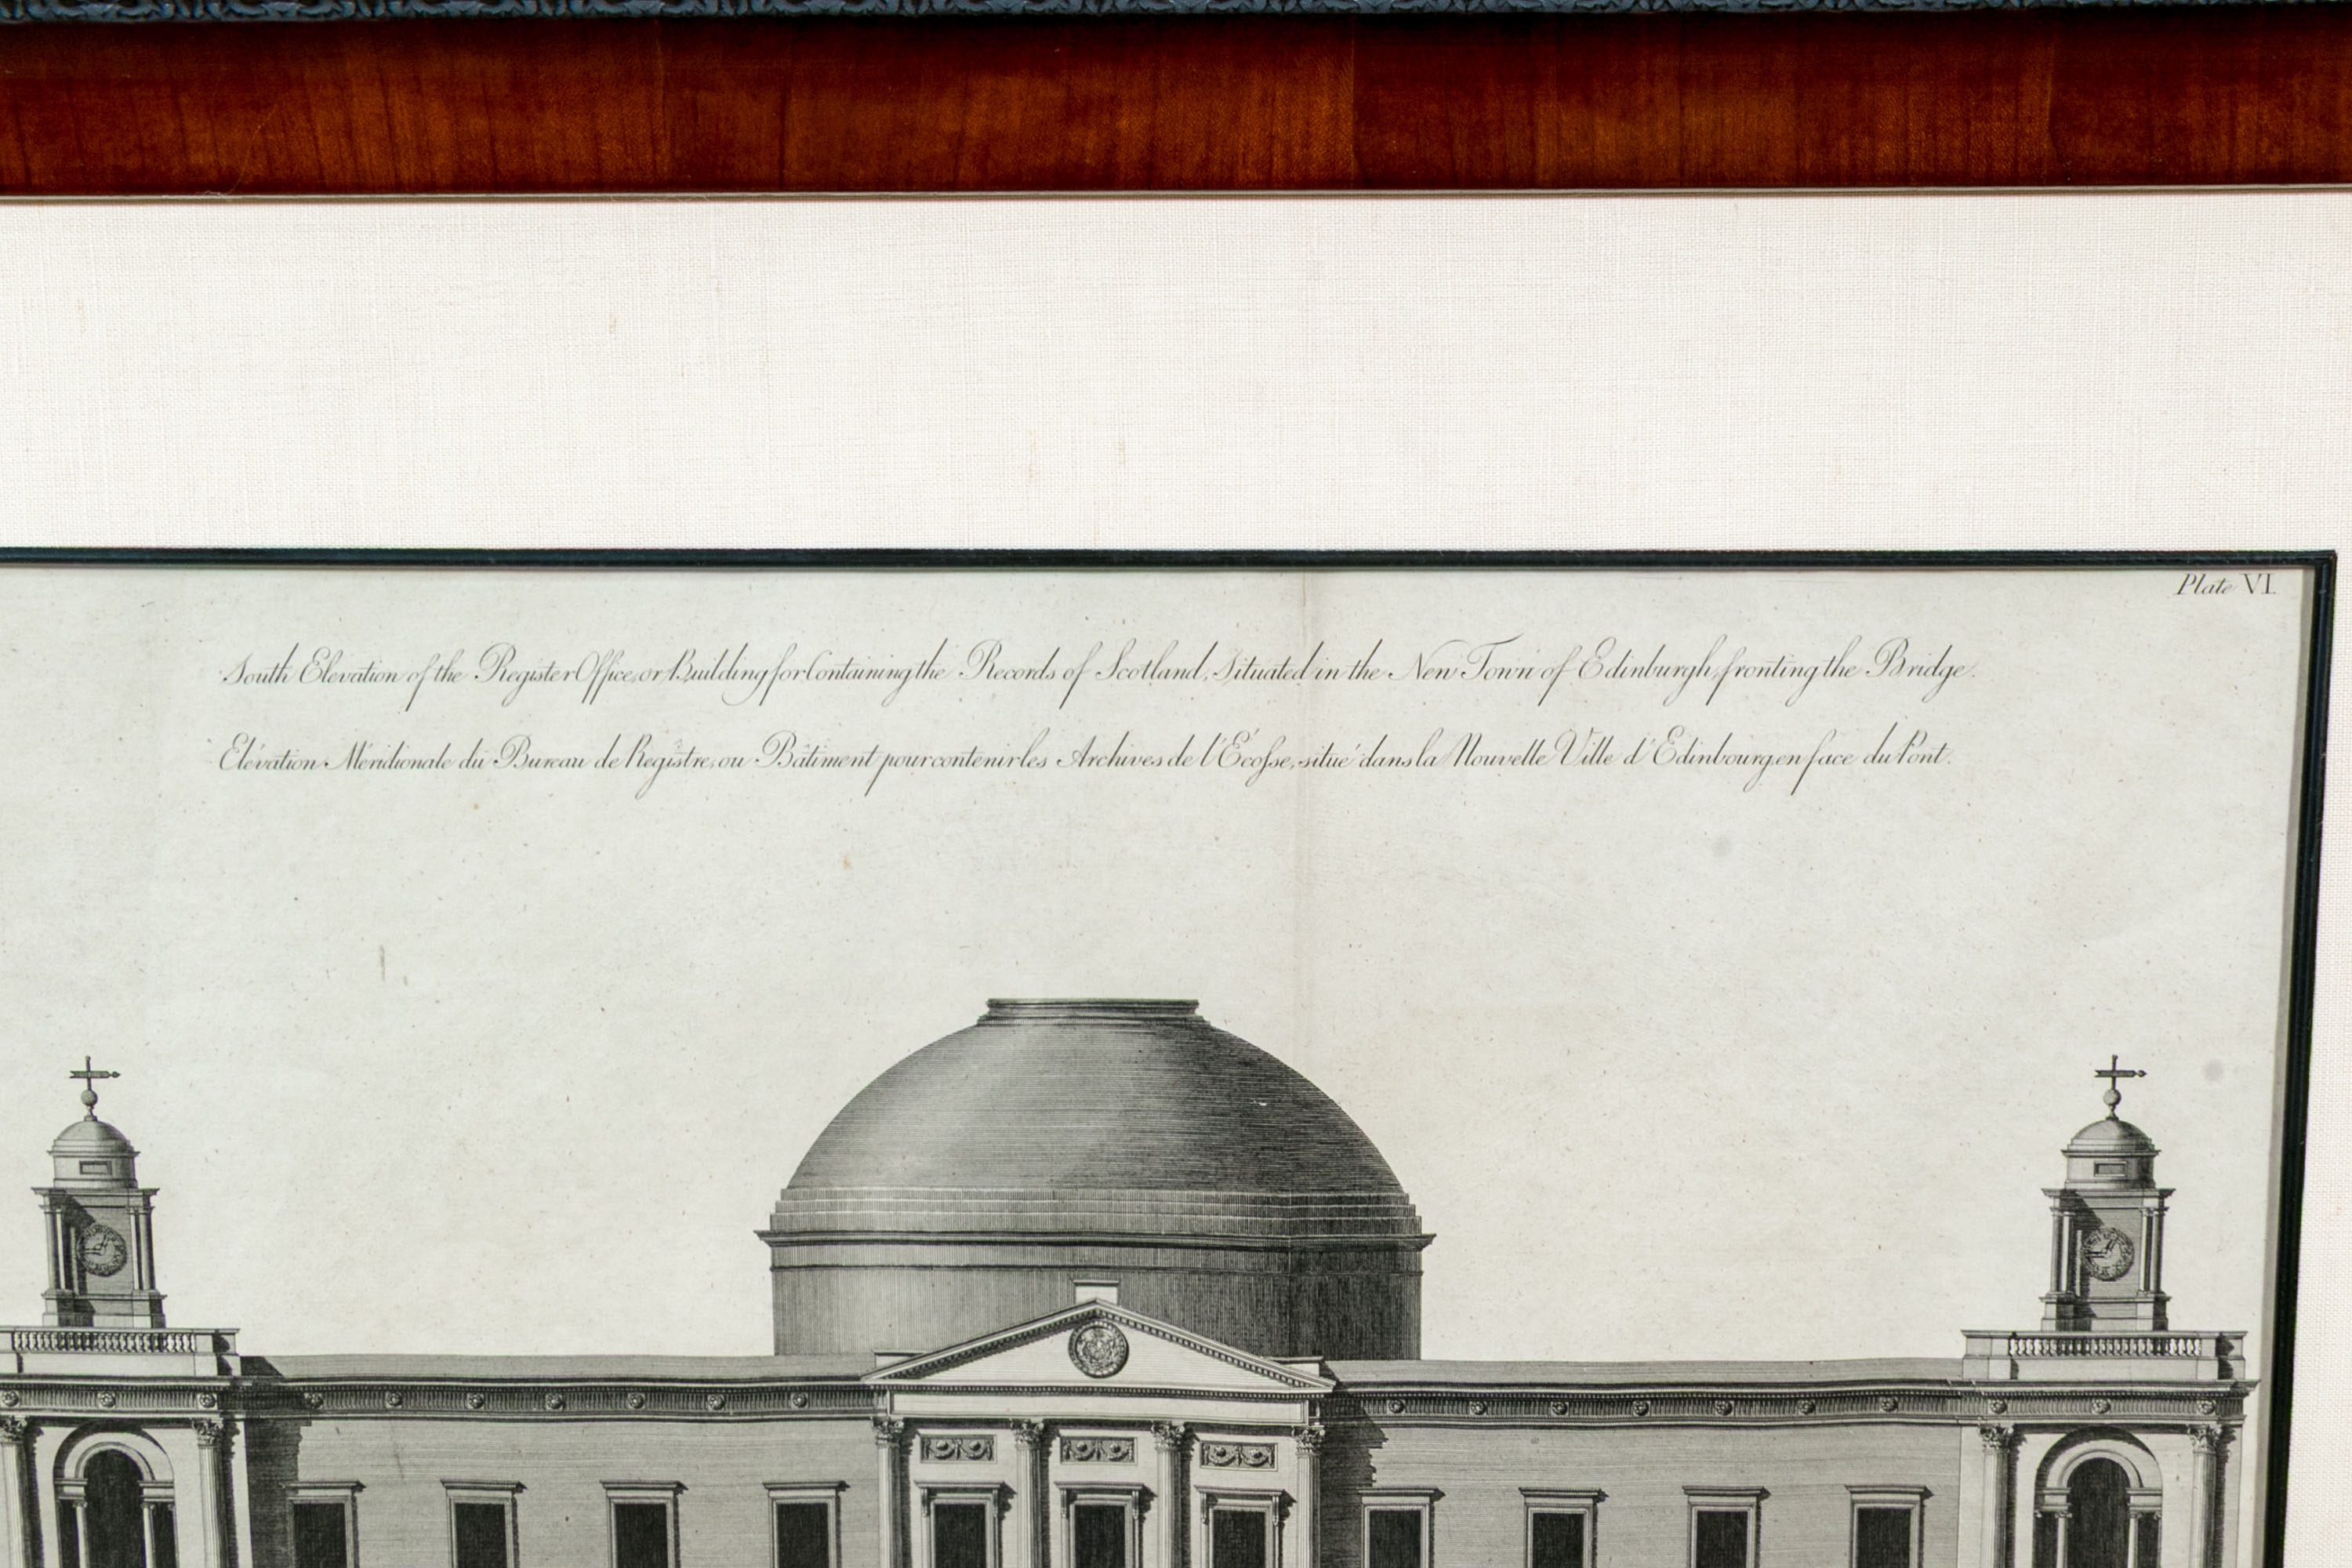 Plate VI.
South Elevation of the Register Office, or Building for Containing the Records of Scotland, Situated in the New Town of Edinburgh, fronting the Bridge.
Elévation Méridionale du Bureau de Registre, ou Bâtiment pour contenir les Archives de l'Écosse, situé dans la Nouvelle Ville d'Edinbourg en face du Pont.